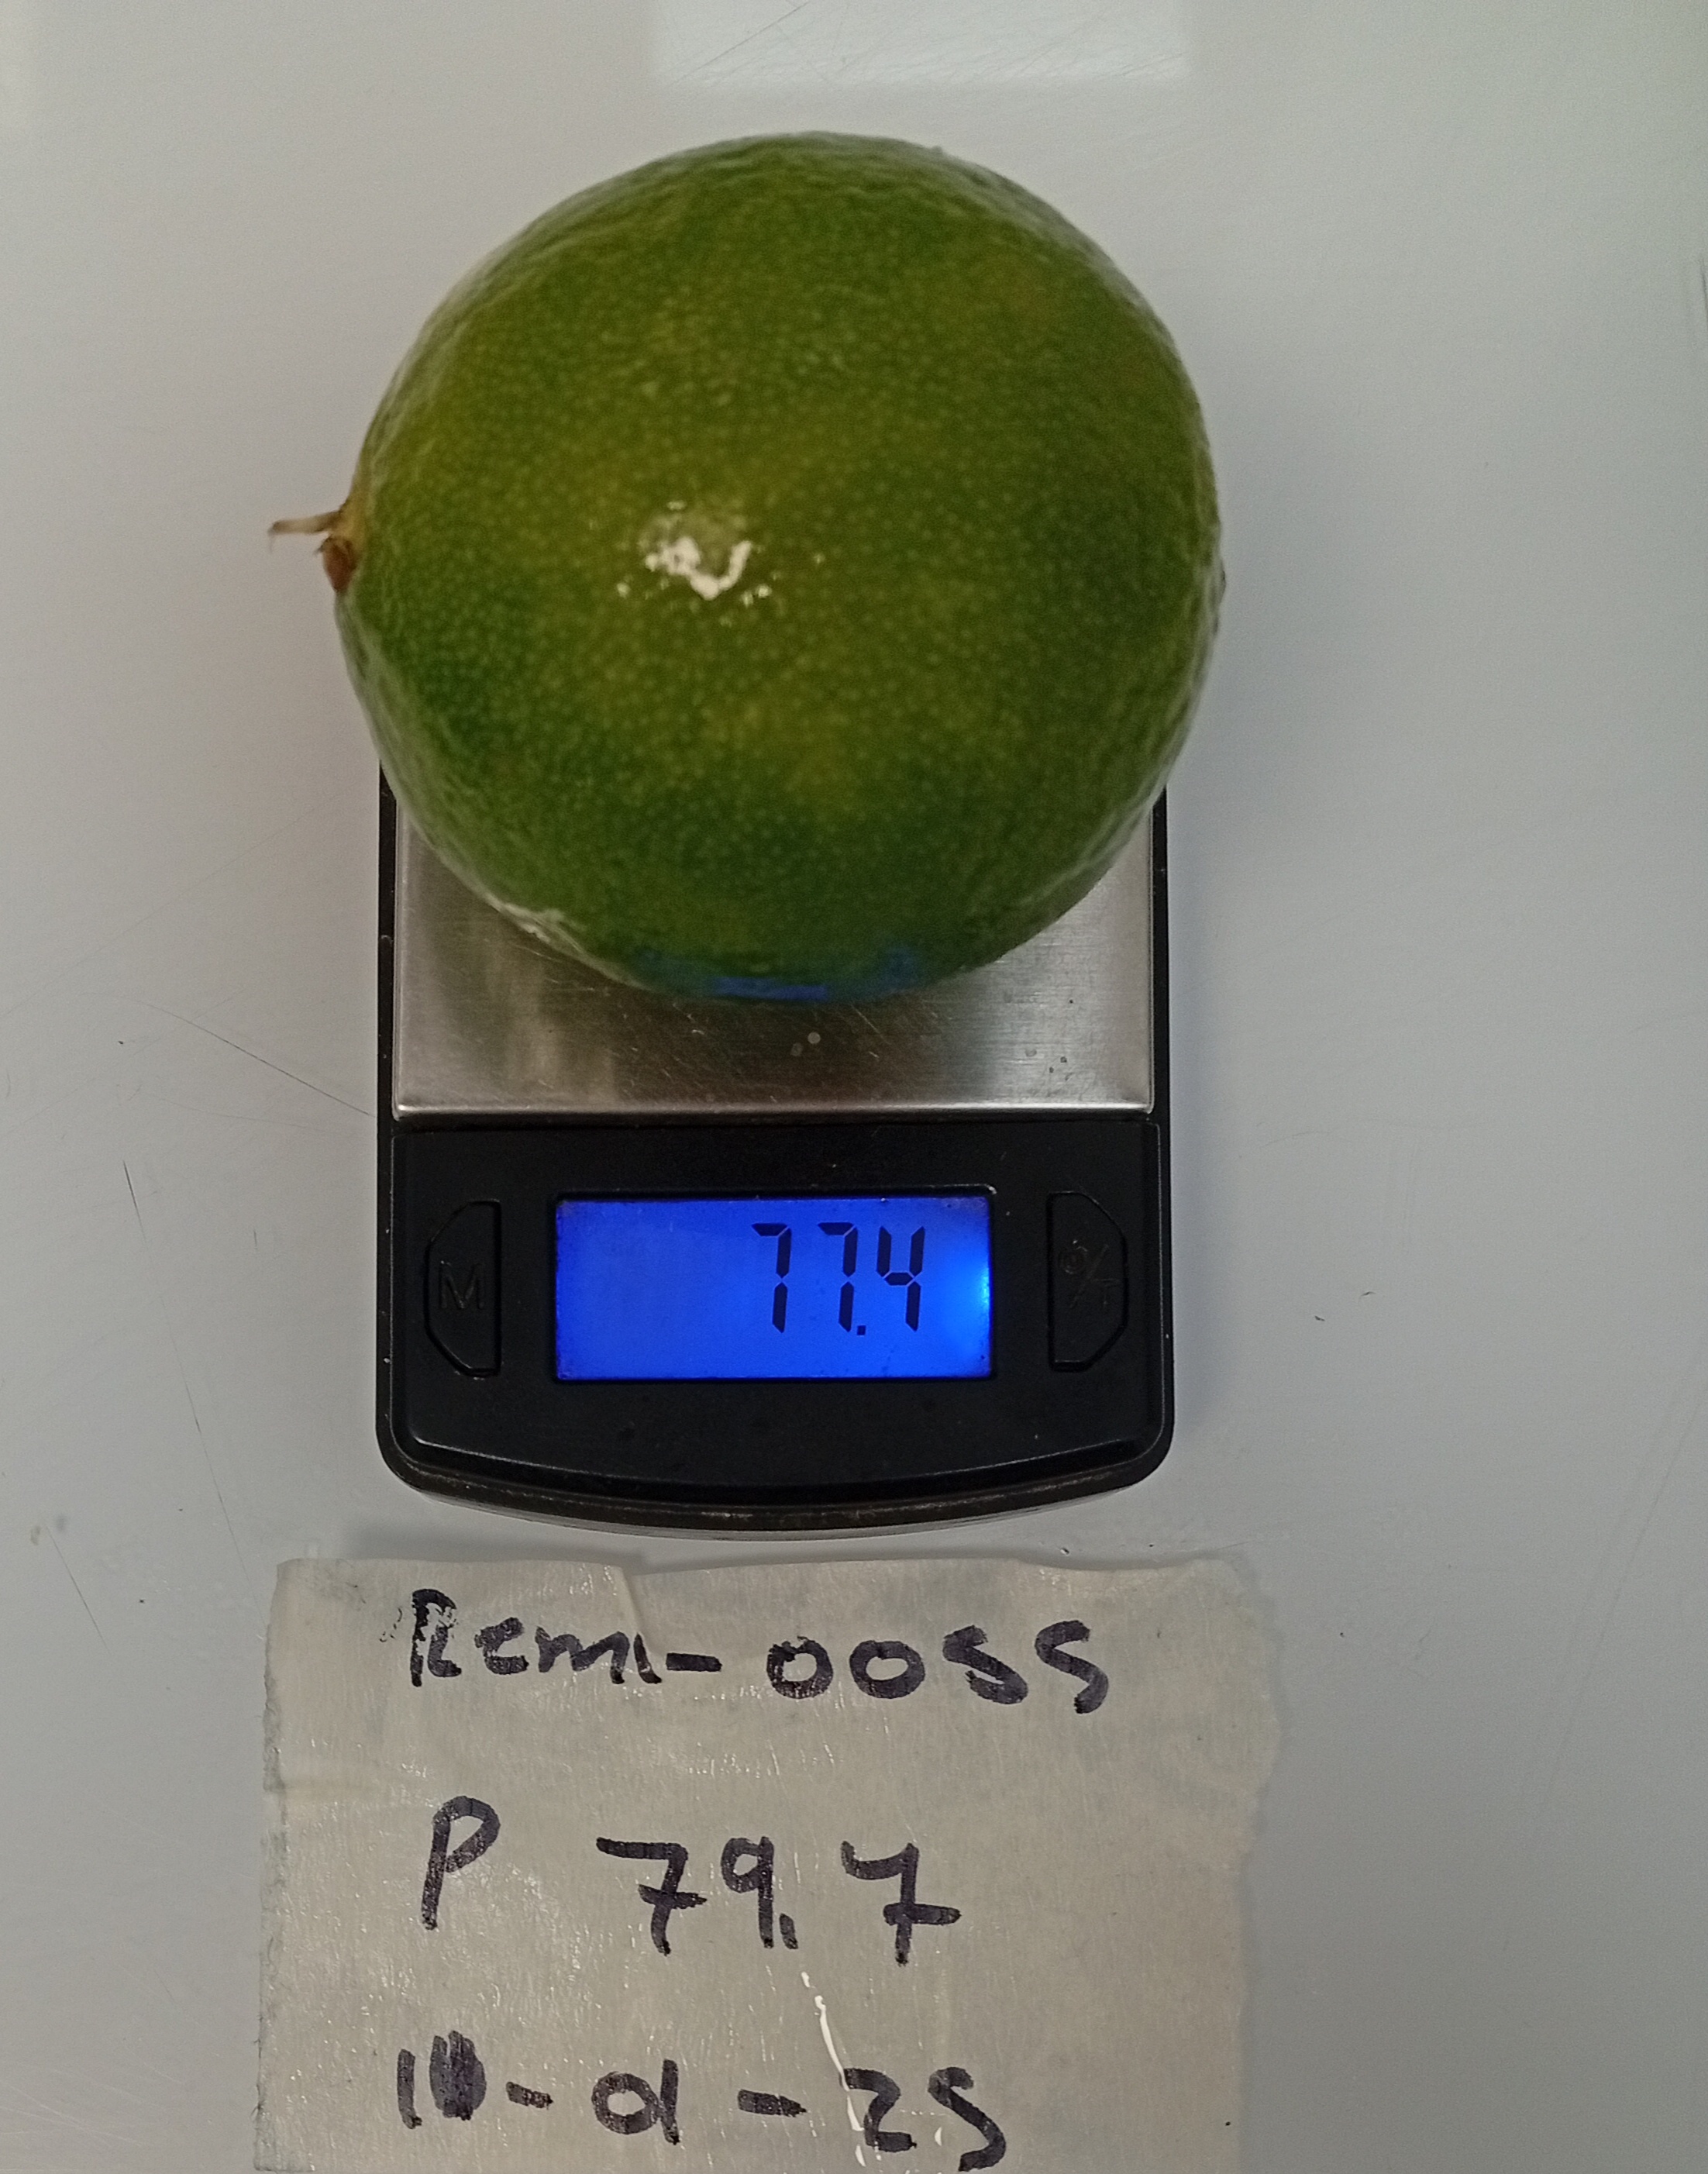 77.4
M
O/T
Remi-0055
P 79.7
10-01-25